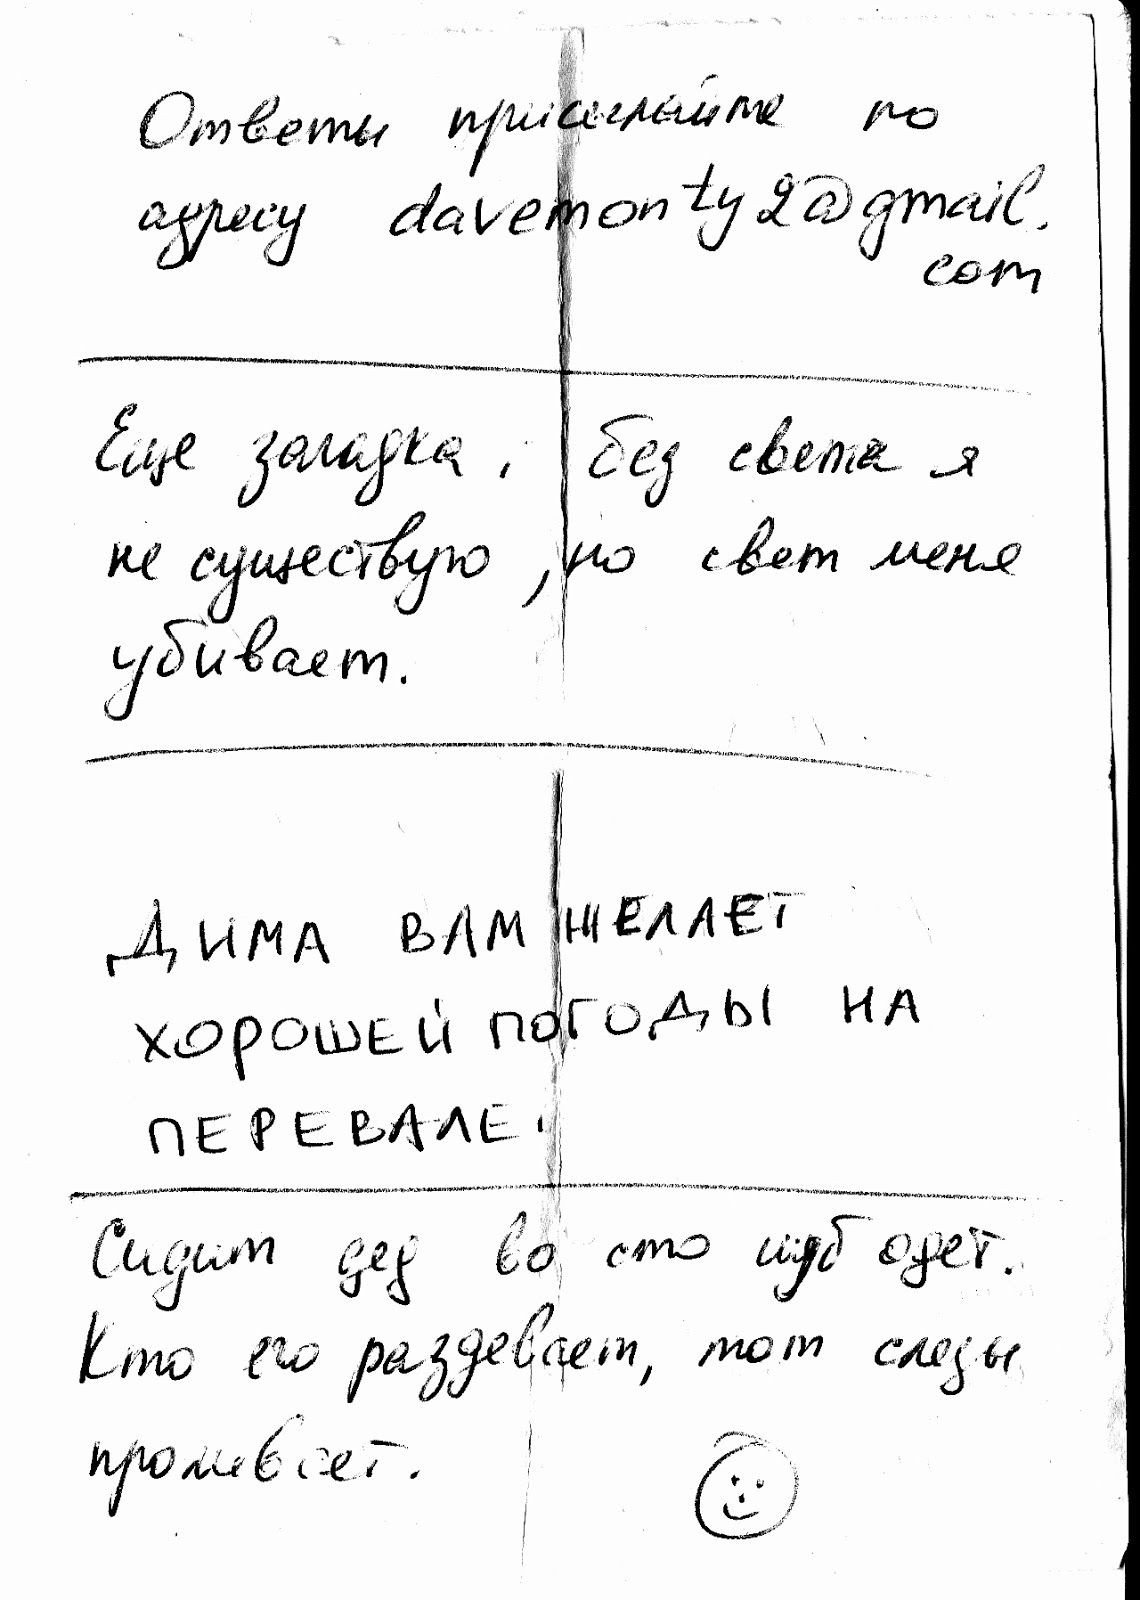 Ответы присылайте по
адресу davemonty2@gmail.
com
Еще загадка: без света я
не существую, но свет меня
убивает.
ДИМА ВАМ ЖЕЛАЕТ
ХОРОШЕЙ ПОГОДЫ НА
ПЕРЕВАЛЕ.
Сидит дед во сто шуб одет.
Кто его раздевает, тот слезы
проливает.